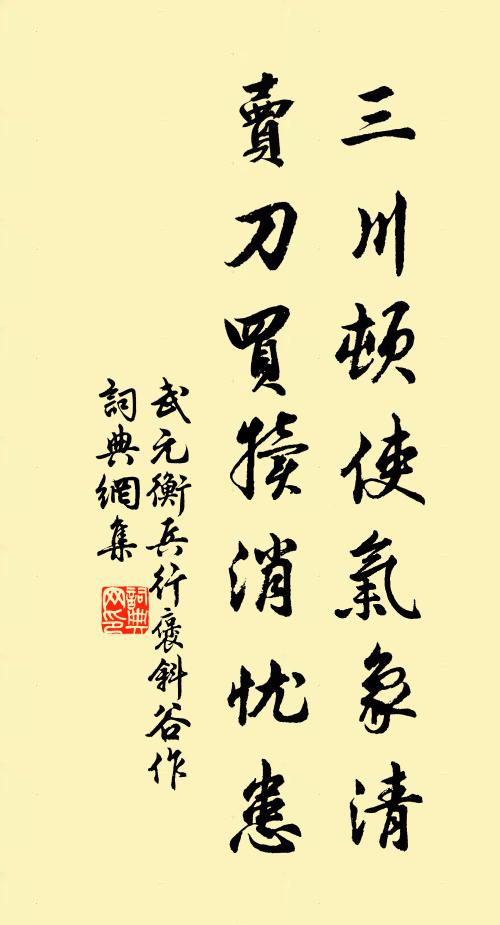 三川頓使氣象清
賣刀買犢消忧患
武元衡兵行褒斜谷作
詞典網集
詞典网印